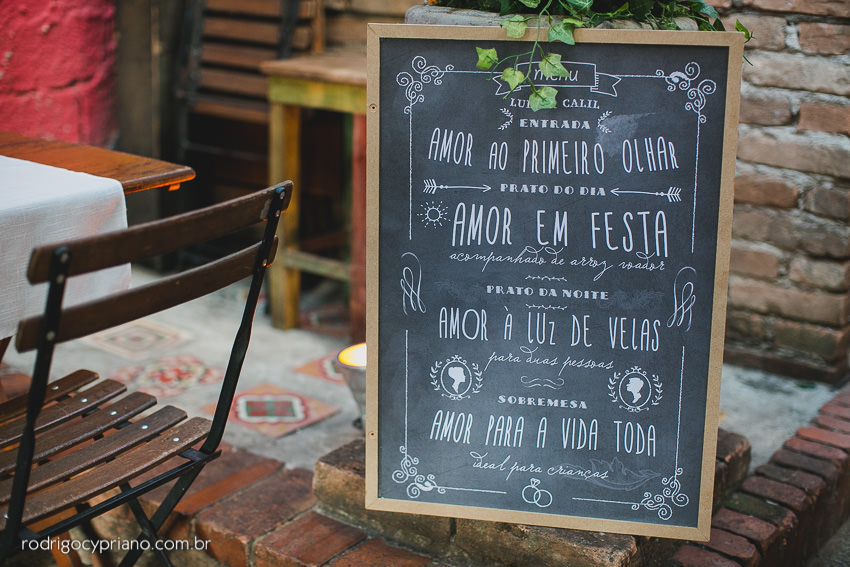 menu
CALIL
ENTRADA
AMOR AO PRIMEIRO OLHAR
PRATO DO DIA
AMOR EM FESTA
acompanhado de arroz voador
PRATO DA NOITE
AMOR À LUZ DE VELAS
para duas pessoas
SOBREMESA
AMOR PARA A VIDA TODA
ideal para crianças
www.rodrigocypriano.com.br